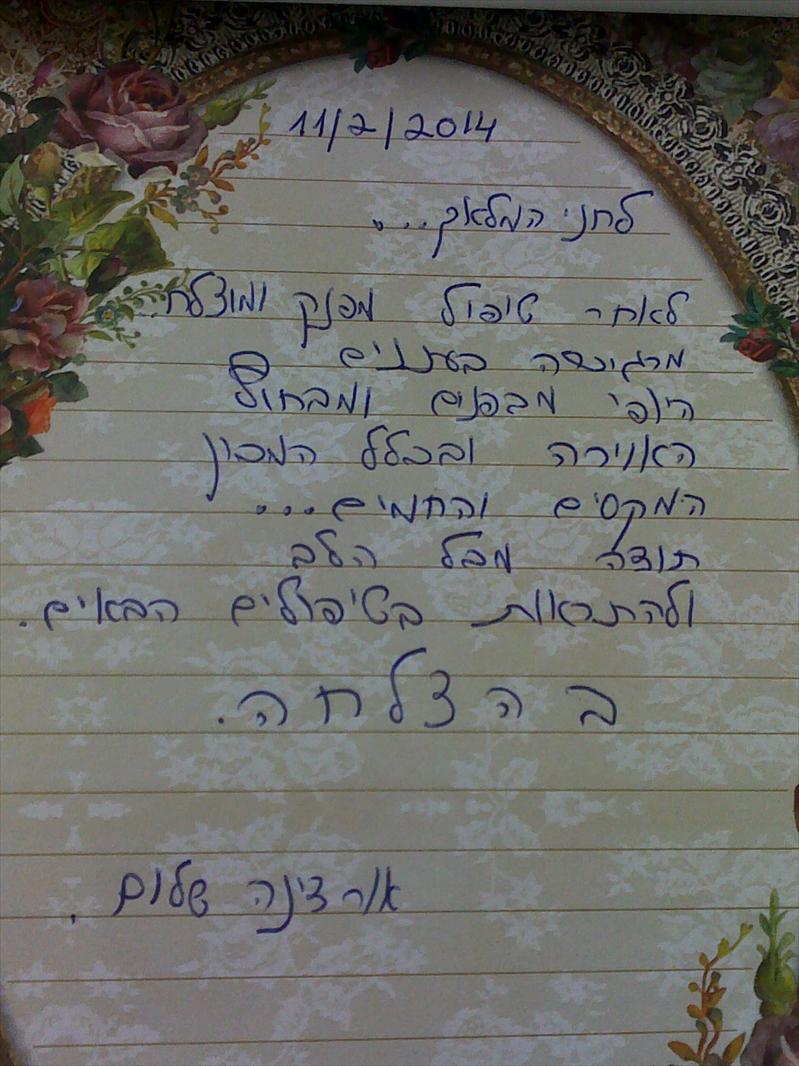 11/2/2014
לחני המלאך...
לאחר טיפול מפנק ומוצלח..
מרגישה בעננים
היופי מבפנים ומבחוץ
האוירה ובכלל המכון
המקסים והחמים...
תודה מכל הלב
ולהתראות בטיפולים הבאים.
בהצלחה.
אור דינה שלום.